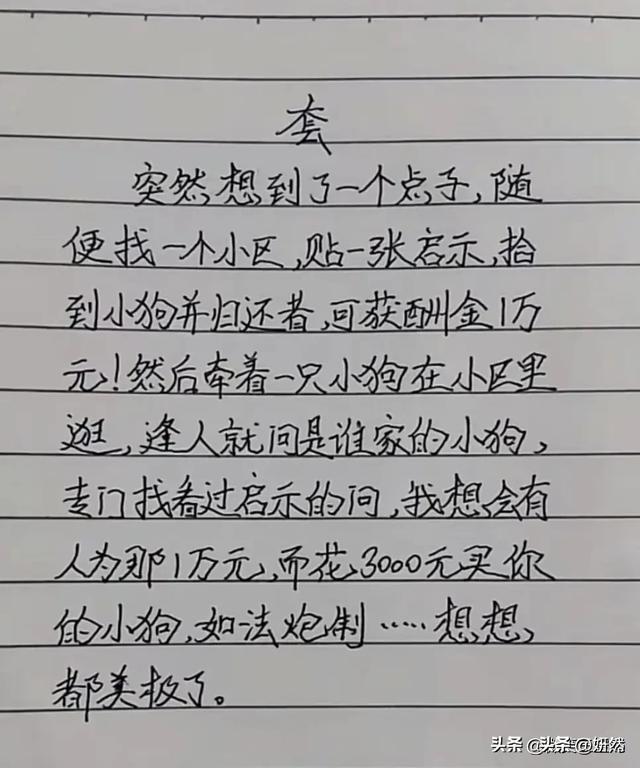 套
突然想到了一个点子,随
便找一个小区,贴一张启示,拾
到小狗并归还者,可获酬金1万
元!然后牵着一只小狗在小区里
逛,逢人就问是谁家的小狗,
专门找看过启示的问,我想会有
人为那1万元,而花3000元买你
的小狗,如法炮制……想想,
都美极了。
头条 @头条 @妍然